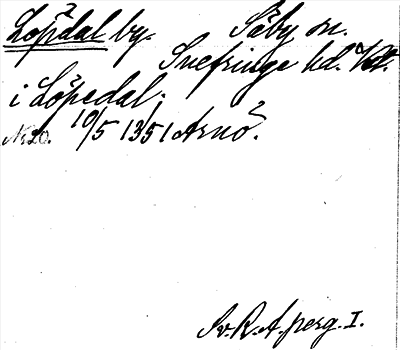 Löpdal by. Säby sn.
Snefringe hd. Vstm.
i Löpedal.
No 20. 10/5 1351 Arnö.
Sv. R. A. perg. I.